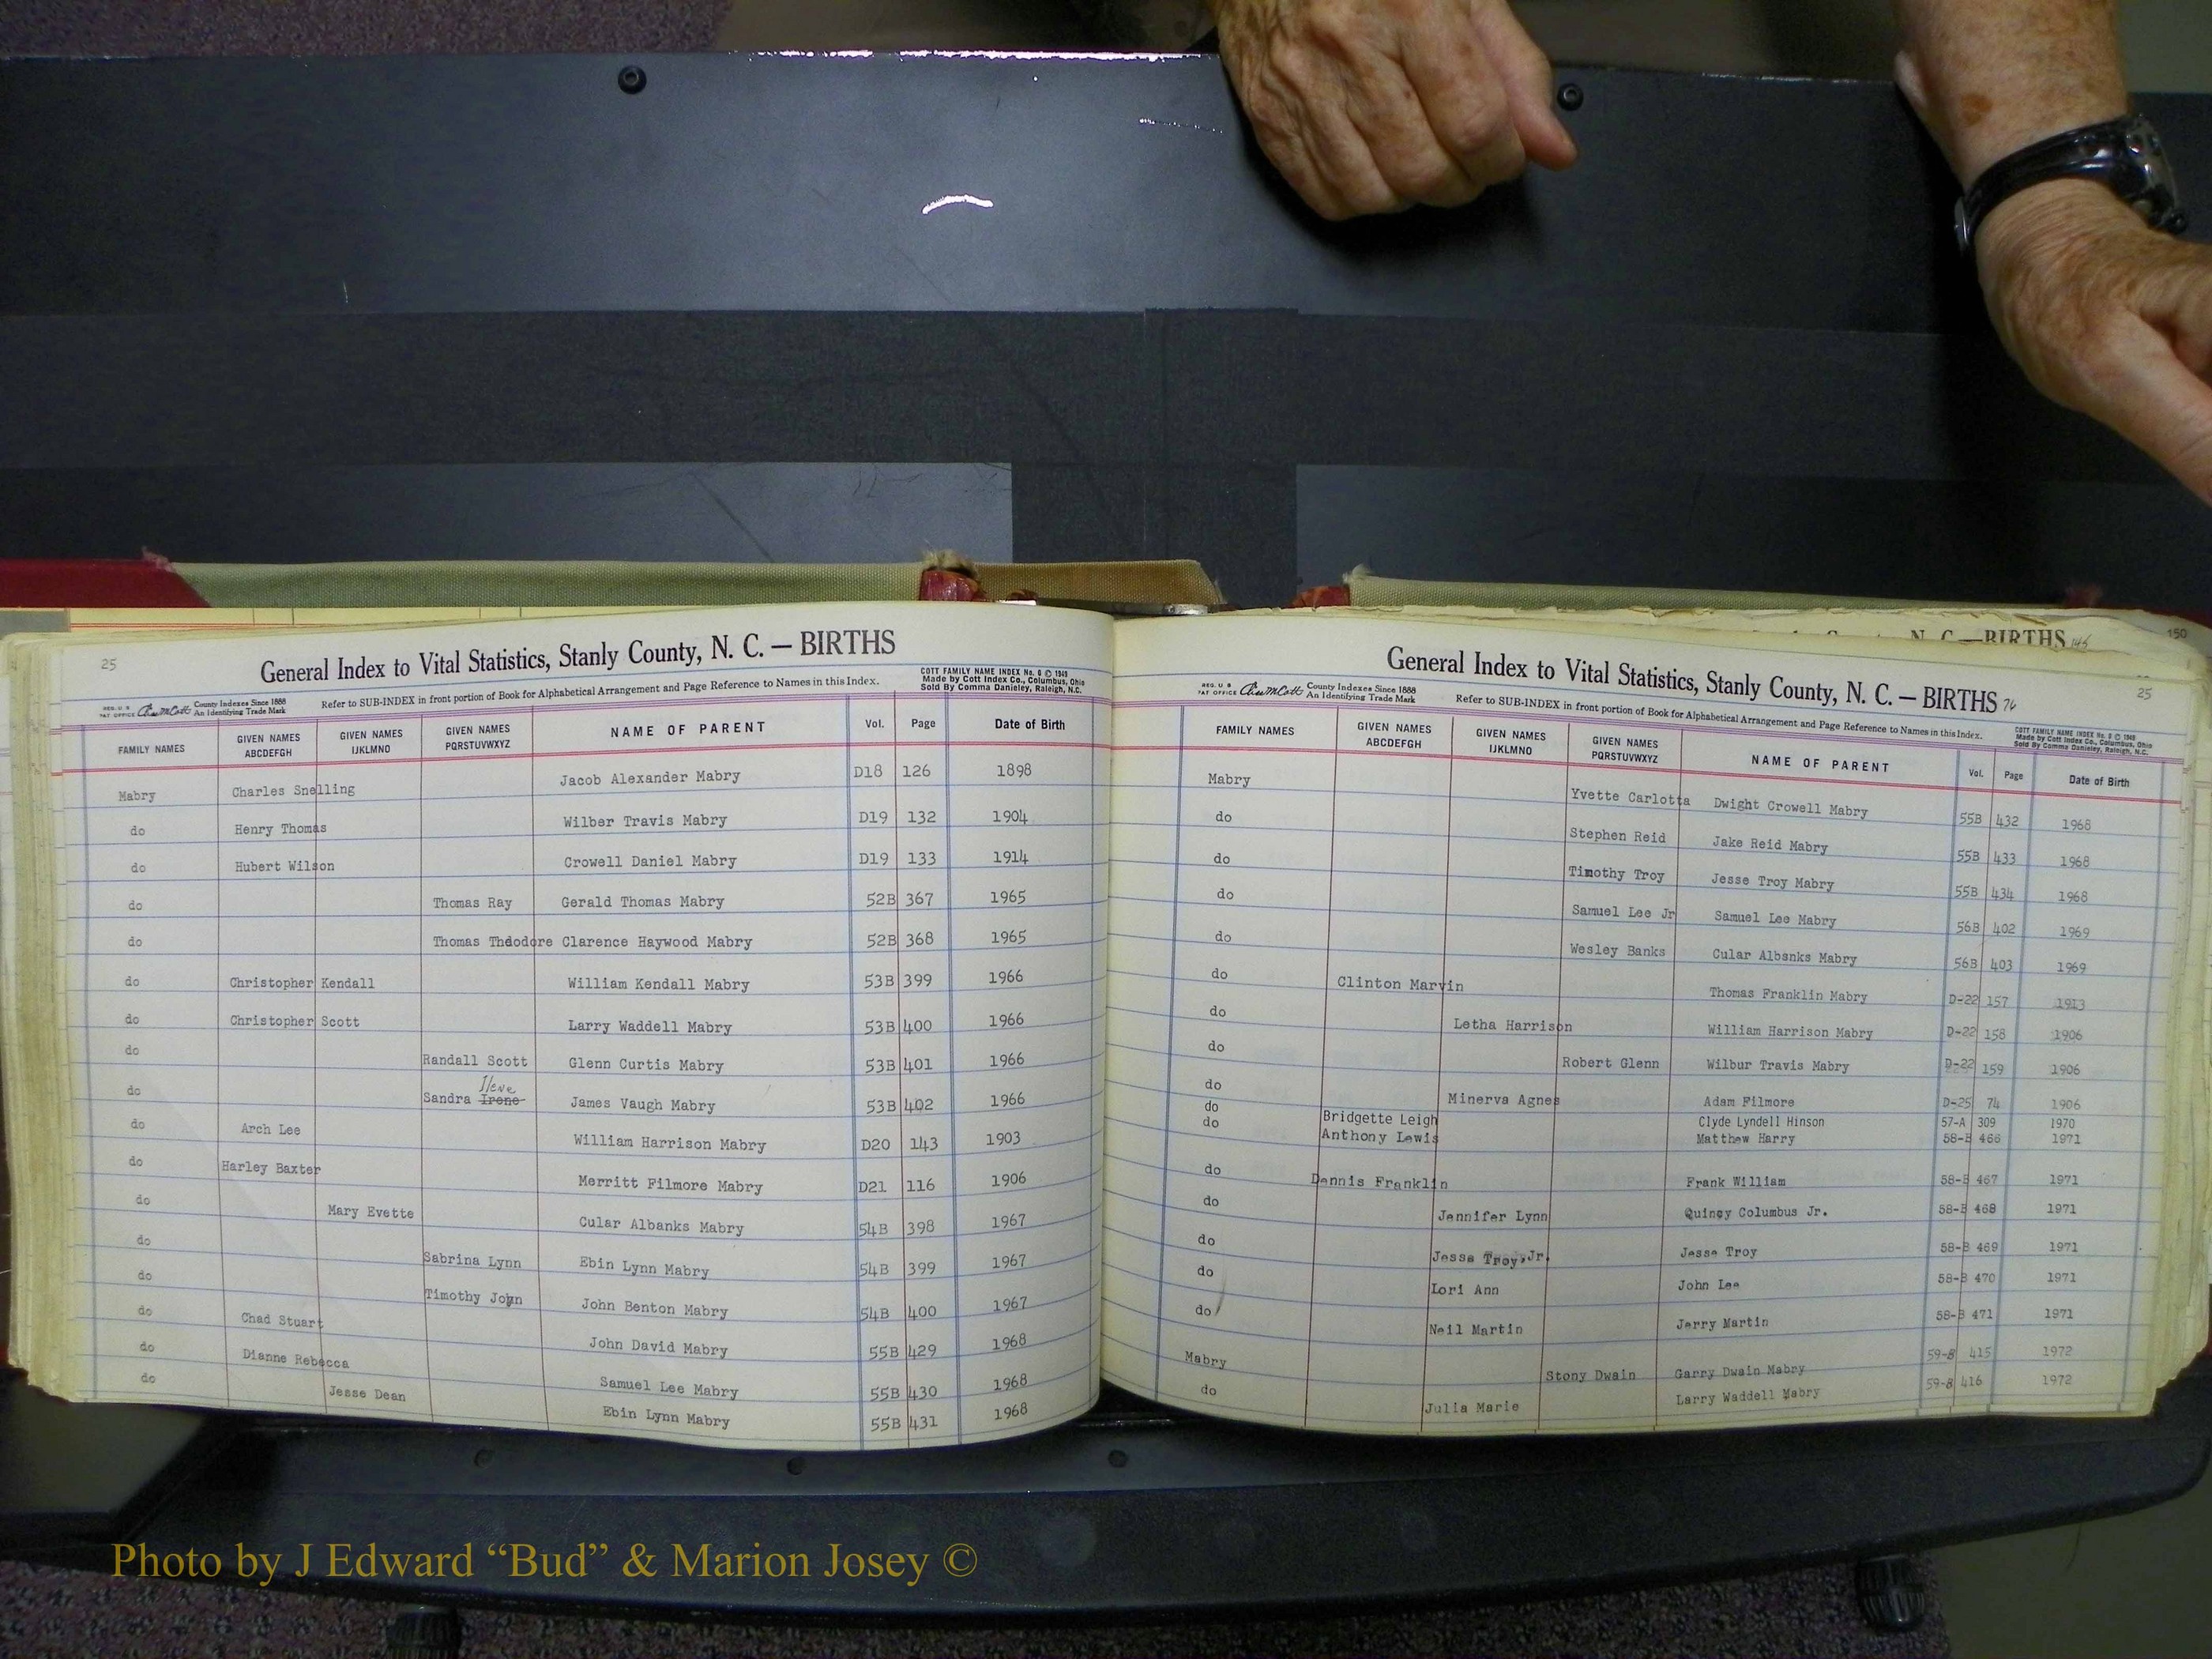 25
General Index to Vital Statistics, Stanly County, N. C. — BIRTHS
REG. U S PAT OFFICE County Indexes Since 1888 An Identifying Trade Mark
Refer to SUB-INDEX in front portion of Book for Alphabetical Arrangement and Page Reference to Names in this Index.
COTT FAMILY NAME INDEX No. 6 © 1949
Made by Cott Index Co., Columbus, Ohio
Sold By Comma Danieley, Raleigh, N.C.
FAMILY NAMES GIVEN NAMES ABCDEFGH GIVEN NAMES IJKLMNO GIVEN NAMES PQRSTUVWXYZ NAME OF PARENT Vol. Page Date of Birth
Mabry Charles Snelling Jacob Alexander Mabry D18 126 1898
do Henry Thomas Wilber Travis Mabry D19 132 1904
do Hubert Wilson Crowell Daniel Mabry D19 133 1914
do Thomas Ray Gerald Thomas Mabry 52B 367 1965
do Thomas Thdodore Clarence Haywood Mabry 52B 368 1965
do Christopher Kendall William Kendall Mabry 53B 399 1966
do Christopher Scott Larry Waddell Mabry 53B 400 1966
do Randall Scott Glenn Curtis Mabry 53B 401 1966
Ileve
do Sandra Irene James Vaugh Mabry 53B 402 1966
do Arch Lee William Harrison Mabry D20 143 1903
do Harley Baxter Merritt Filmore Mabry D21 116 1906
do Mary Evette Cular Albanks Mabry 54B 398 1967
do Sabrina Lynn Ebin Lynn Mabry 54B 399 1967
do Timothy John John Benton Mabry 54B 400 1967
do Chad Stuart John David Mabry 55B 429 1968
do Dianne Rebecca Samuel Lee Mabry 55B 430 1968
do Jesse Dean Ebin Lynn Mabry 55B 431 1968
N. C. — BIRTHS 146
150
General Index to Vital Statistics, Stanly County, N. C. — BIRTHS 76
25
REG. U S PAT OFFICE County Indexes Since 1888 An Identifying Trade Mark
Refer to SUB-INDEX in front portion of Book for Alphabetical Arrangement and Page Reference to Names in this Index.
COTT FAMILY NAME INDEX No. 6 © 1949
Made by Cott Index Co., Columbus, Ohio
Sold By Comma Danieley, Raleigh, N.C.
FAMILY NAMES GIVEN NAMES ABCDEFGH GIVEN NAMES IJKLMNO GIVEN NAMES PQRSTUVWXYZ NAME OF PARENT Vol. Page Date of Birth
Mabry Yvette Carlotta Dwight Crowell Mabry 55B 432 1968
do Stephen Reid Jake Reid Mabry 55B 433 1968
do Timothy Troy Jesse Troy Mabry 55B 434 1968
do Samuel Lee Jr Samuel Lee Mabry 56B 402 1969
do Wesley Banks Cular Albsnks Mabry 56B 403 1969
do Clinton Marvin Thomas Franklin Mabry D-22 157 1913
do Letha Harrison William Harrison Mabry D-22 158 1906
do Robert Glenn Wilbur Travis Mabry D-22 159 1906
do Minerva Agnes Adam Filmore D-25 74 1906
do Bridgette Leigh Clyde Lyndell Hinson 57-A 309 1970
do Anthony Lewis Matthew Harry 58-B 466 1971
do Dennis Franklin Frank William 58-B 467 1971
do Jennifer Lynn Quincy Columbus Jr. 58-B 468 1971
do Jesse Troy,Jr. Jesse Troy 58-B 469 1971
do Lori Ann John Lee 58-B 470 1971
do Neil Martin Jerry Martin 58-B 471 1971
Mabry Stony Dwain Garry Dwain Mabry 59-B 415 1972
do Julia Marie Larry Waddell Mabry 59-B 416 1972
Photo by J Edward “Bud” & Marion Josey ©